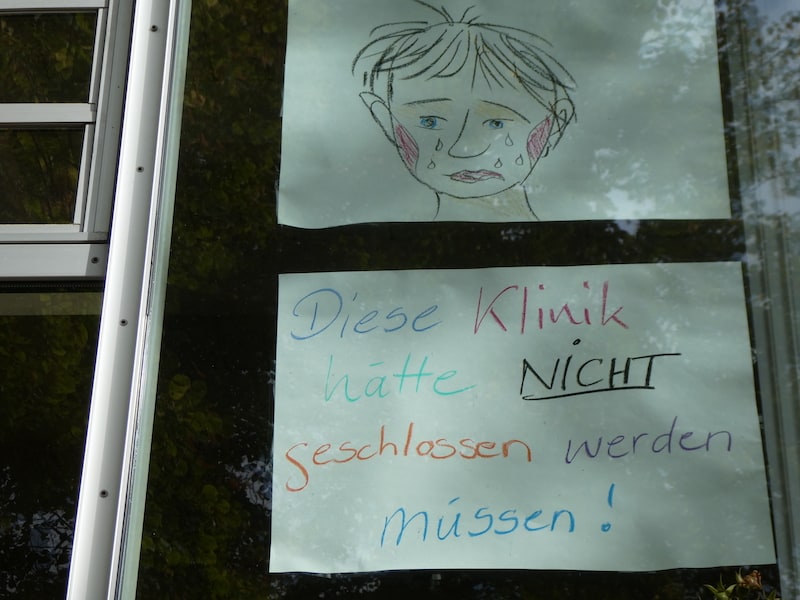 Diese Klinik
hätte NICHT
geschlossen werden
müssen!